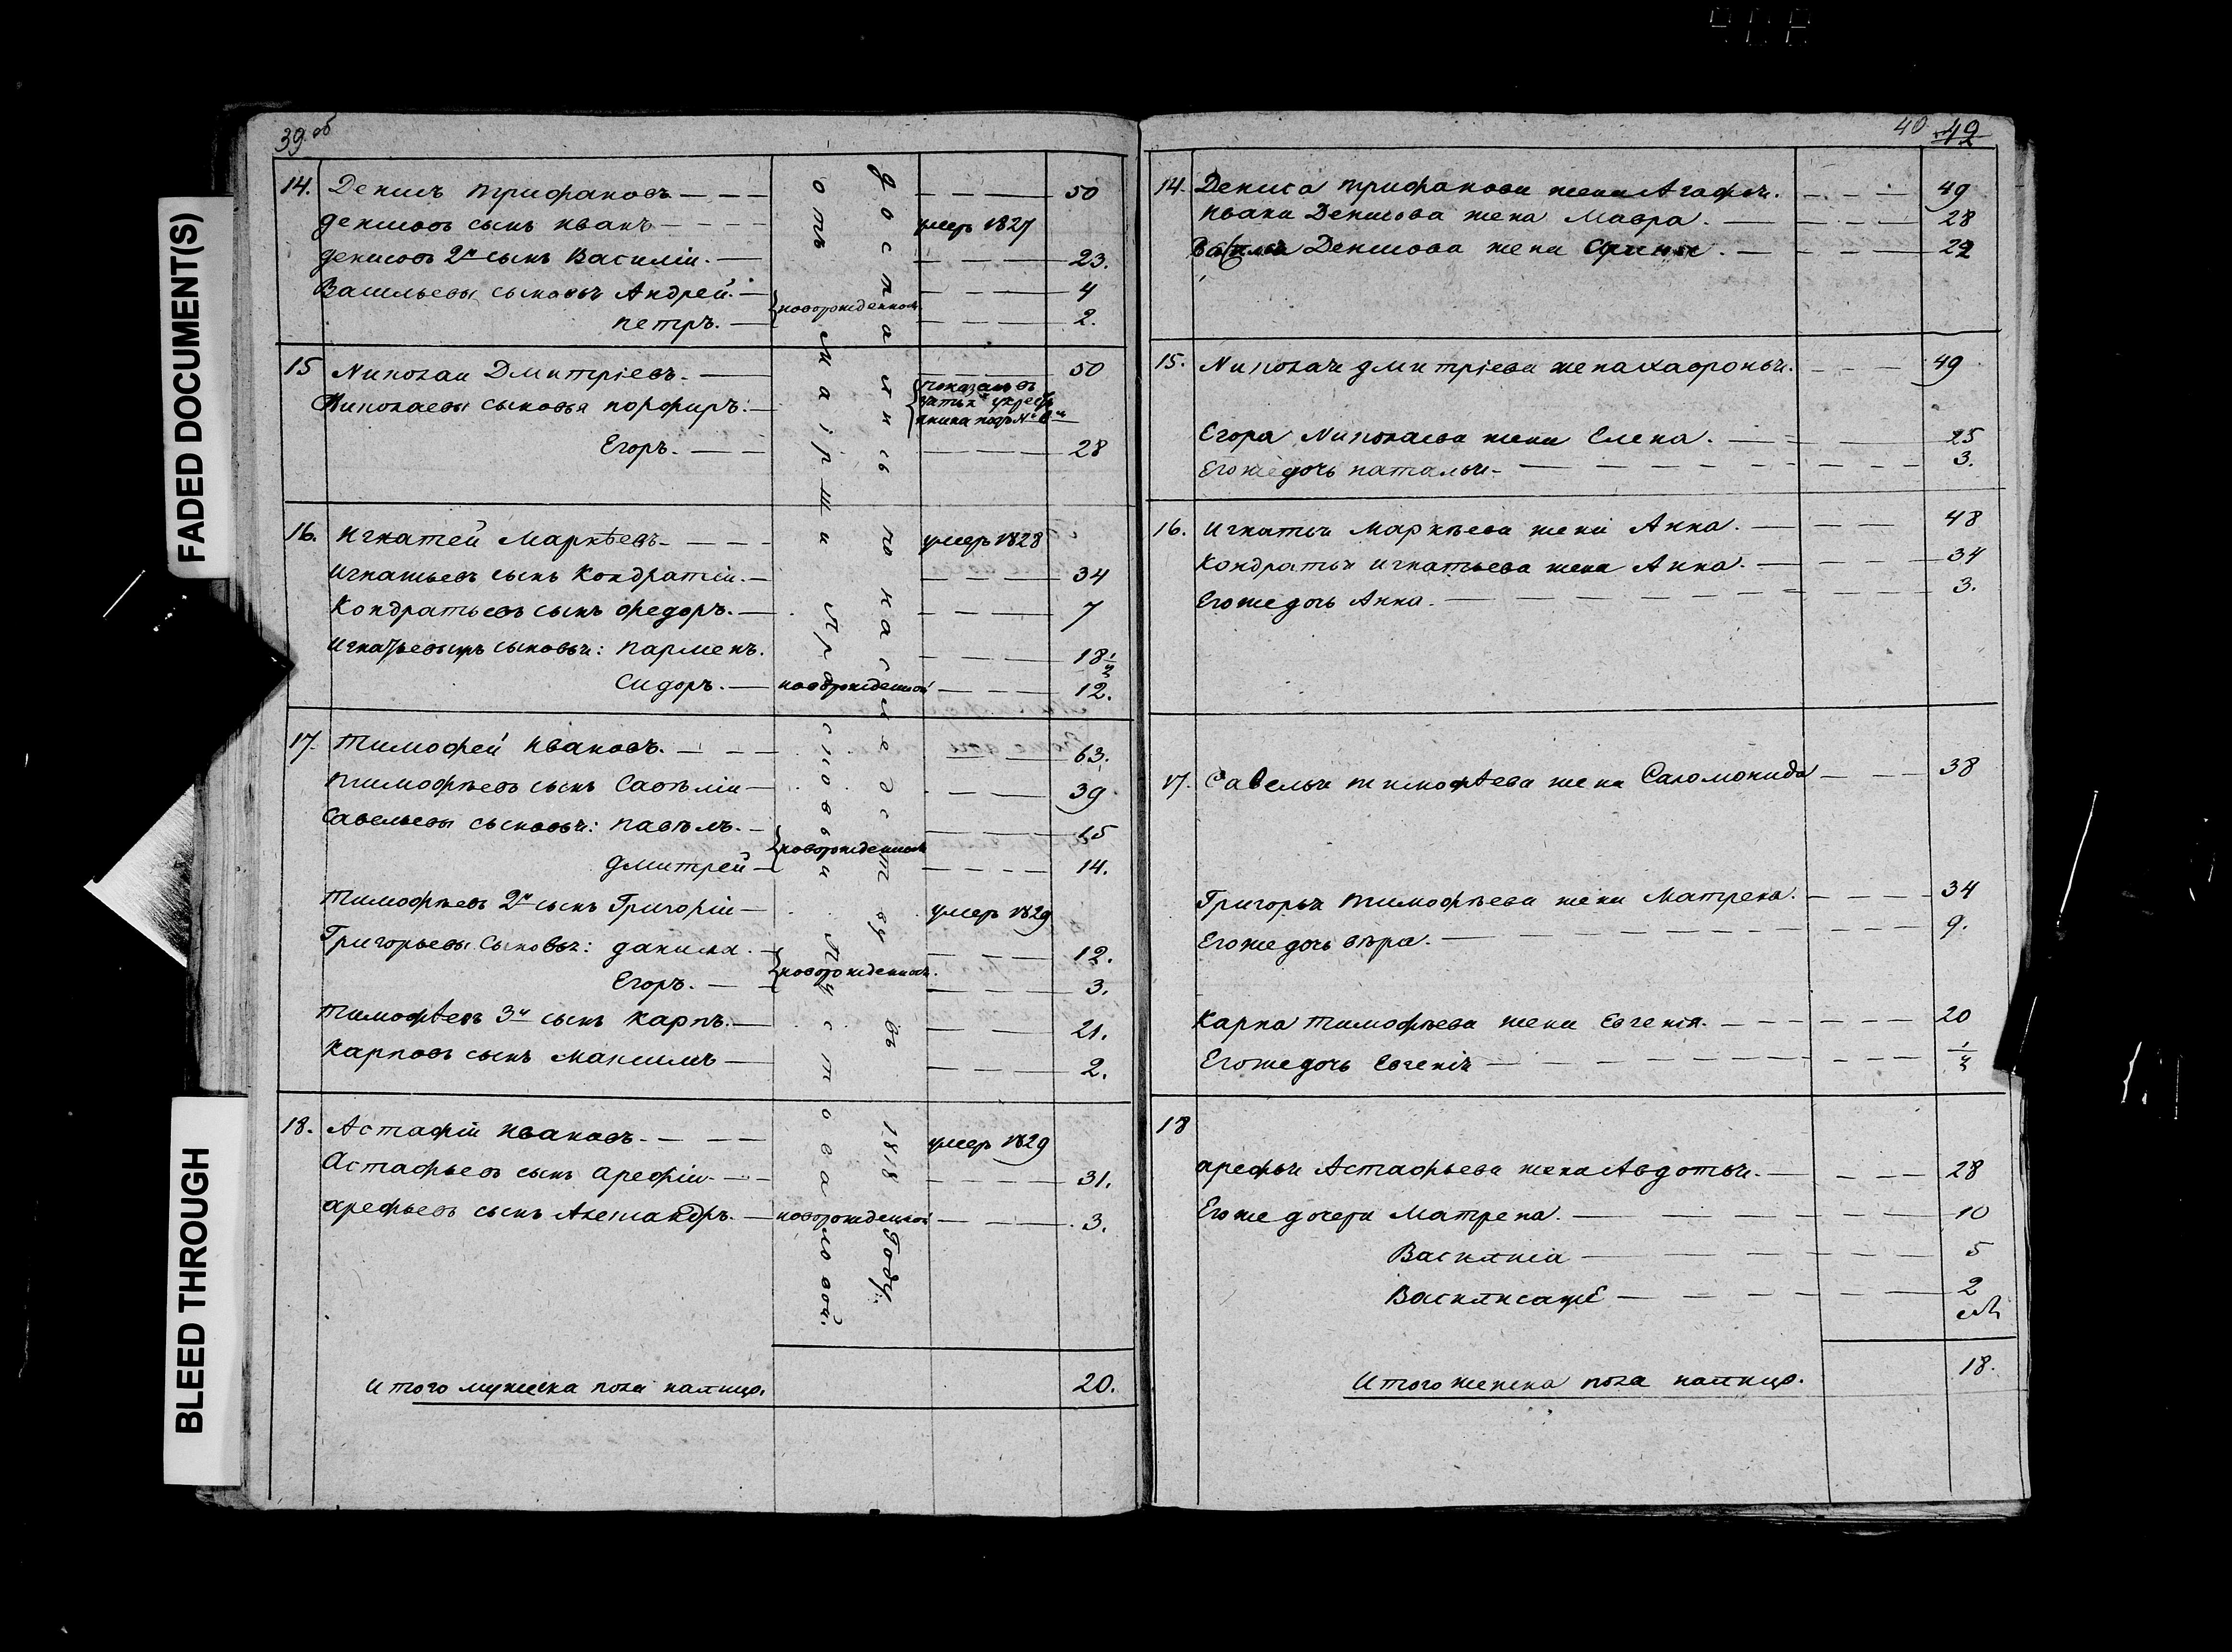 FADED DOCUMENT(S)
BLEED THROUGH
39 об
14. Денисъ трифановъ 50
денисовъ сынъ иванъ умеръ 1827
денисовъ 2й сынъ Василіи. 23.
Васильевы сыновьи Андрей. 4
новорожденныи
петръ. 2.
15 Николаи Дмитріевъ. 50
Николаевы сыновья порфиръ.
показанъ въ
Егоръ. 28
16. Игнатей Маркѣевъ умеръ 1828
Игнатьевъ сынъ Кондратіи. 34
Кондратьевъ сынъ федоръ. 7
Игнатьевы сыновьи: парменъ. 18
Сидоръ. новорожденной 12.
17. тимофей ивановъ. 63.
тимофѣевъ сынъ Савѣліи 39
Савельевы сыновьи: павѣлъ. 15
новорожденныи
дмитрей 14.
тимофѣевъ 2й сынъ Григоріи умеръ 1829
Григорьевы Сыновьи: данила. 12.
новорожденныи.
Егоръ. 3.
тимофѣевъ 3й сынъ карпъ. 21.
карповъ сынъ Максимъ 2.
18. Астафіи ивановъ. умеръ 1829
Астафьевъ сынъ арефіи. 31.
арефьевъ сынъ Александръ. новорожденной 3.
доспалась по наследству въ 1818 Году.
отъ Маіорши
итого мужеска пола налицо. 20.
40 42
14. Дениса трифанова жена Агафьи. 49
ивана Денисова жена Мавра. 28
Василья Денисова жена 22
15. Николаи дмитріева жена хавроньи. 49
Егора Николаева жена Елена. 25
Егоже дочь натальи. 3.
16. игнатьи Маркѣева жена Анна. 48
кондратьи игнатьева жена Анна. 34
Егоже дочь Анна. 3.
17. Савельи тимофѣева жена Саломонида 38
Григорьи тимофѣева жена Матрена. 34
Егоже дочь вѣра. 9.
карпа тимофѣева жена Евгенія. 20
Егоже дочь Евгеніи
18
арефьи Астафьева жена Авдотьи. 28
Егоже дочери Матрена. 10
Василиса 5
Василисаже 2
итого женска пола налицо. 18.